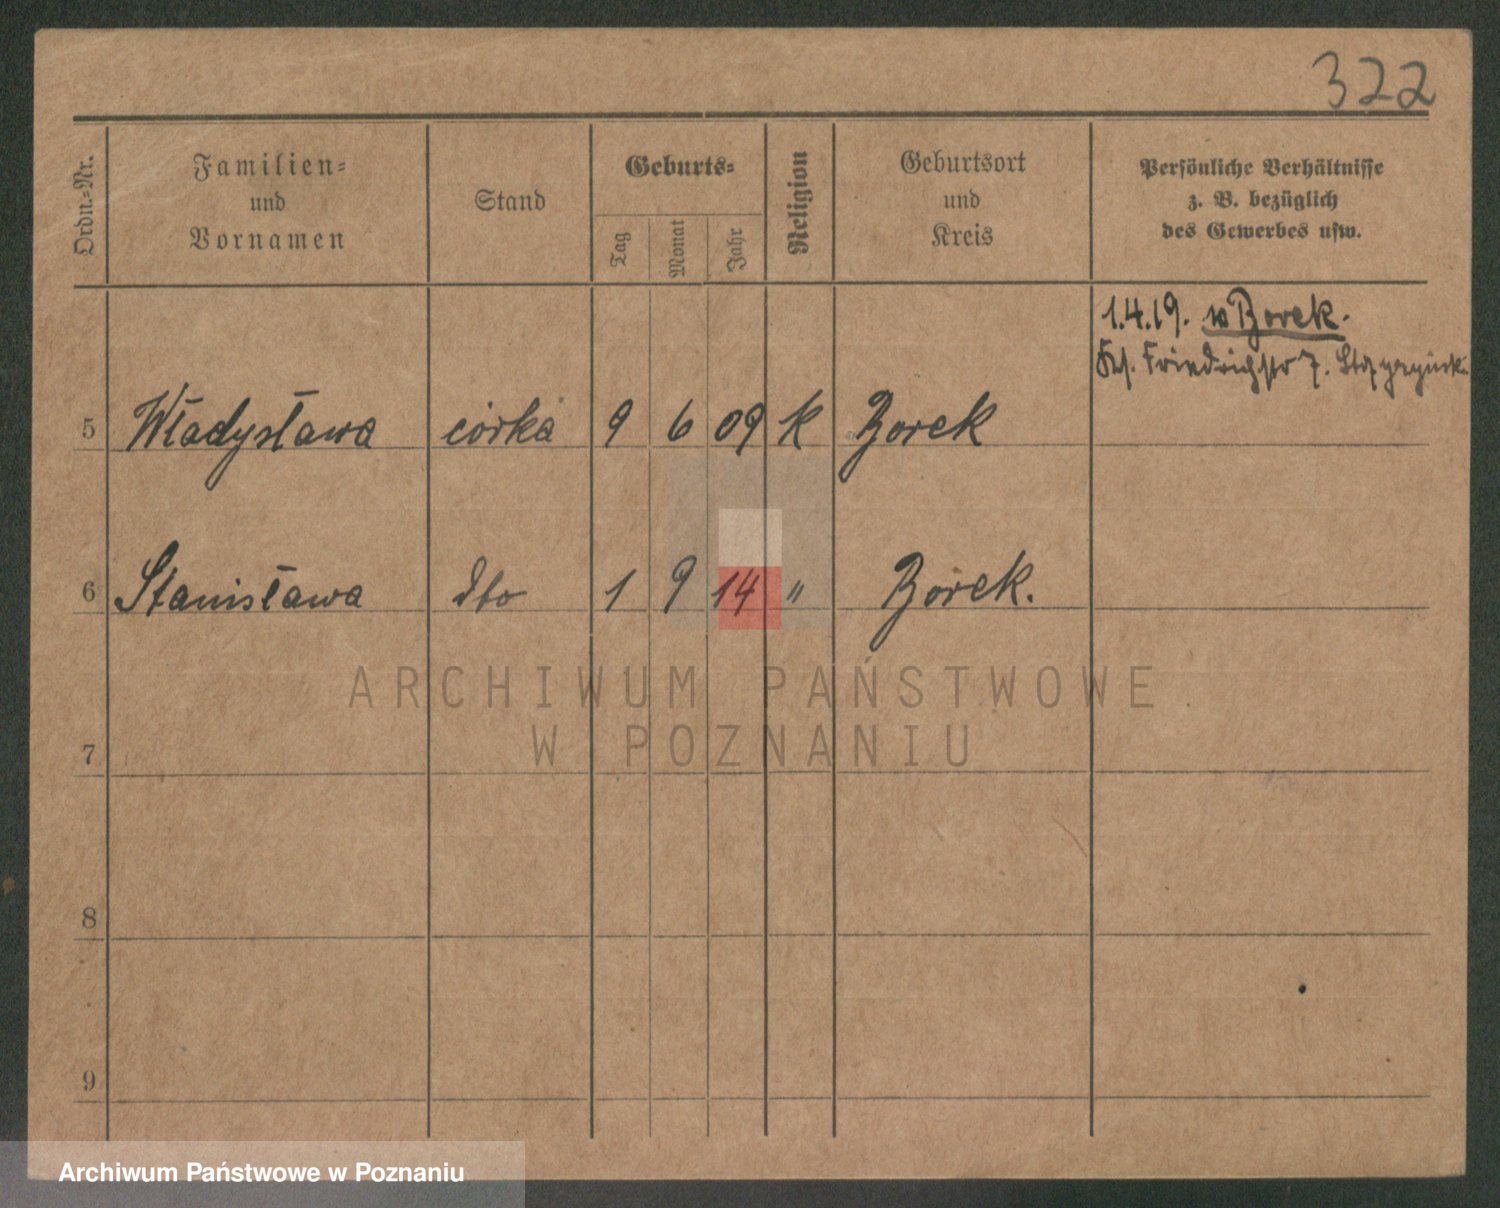 322
Ordn.-Nr.
Familien-
und
Vornamen
Stand
Geburts-
Tag
Monat
Jahr
Religion
Geburtsort
und
Kreis
Persönliche Verhältnisse
z. B. bezüglich
des Gewerbes usw.
1.4.19. w Borek.
Friedrichstr 7.
5 Władysława córka 9 6 09 K Borek
6 Stanisława dto 1 9 14 " Borek.
ARCHIWUM PAŃSTWOWE
W POZNANIU
7
8
9
Archiwum Państwowe w Poznaniu